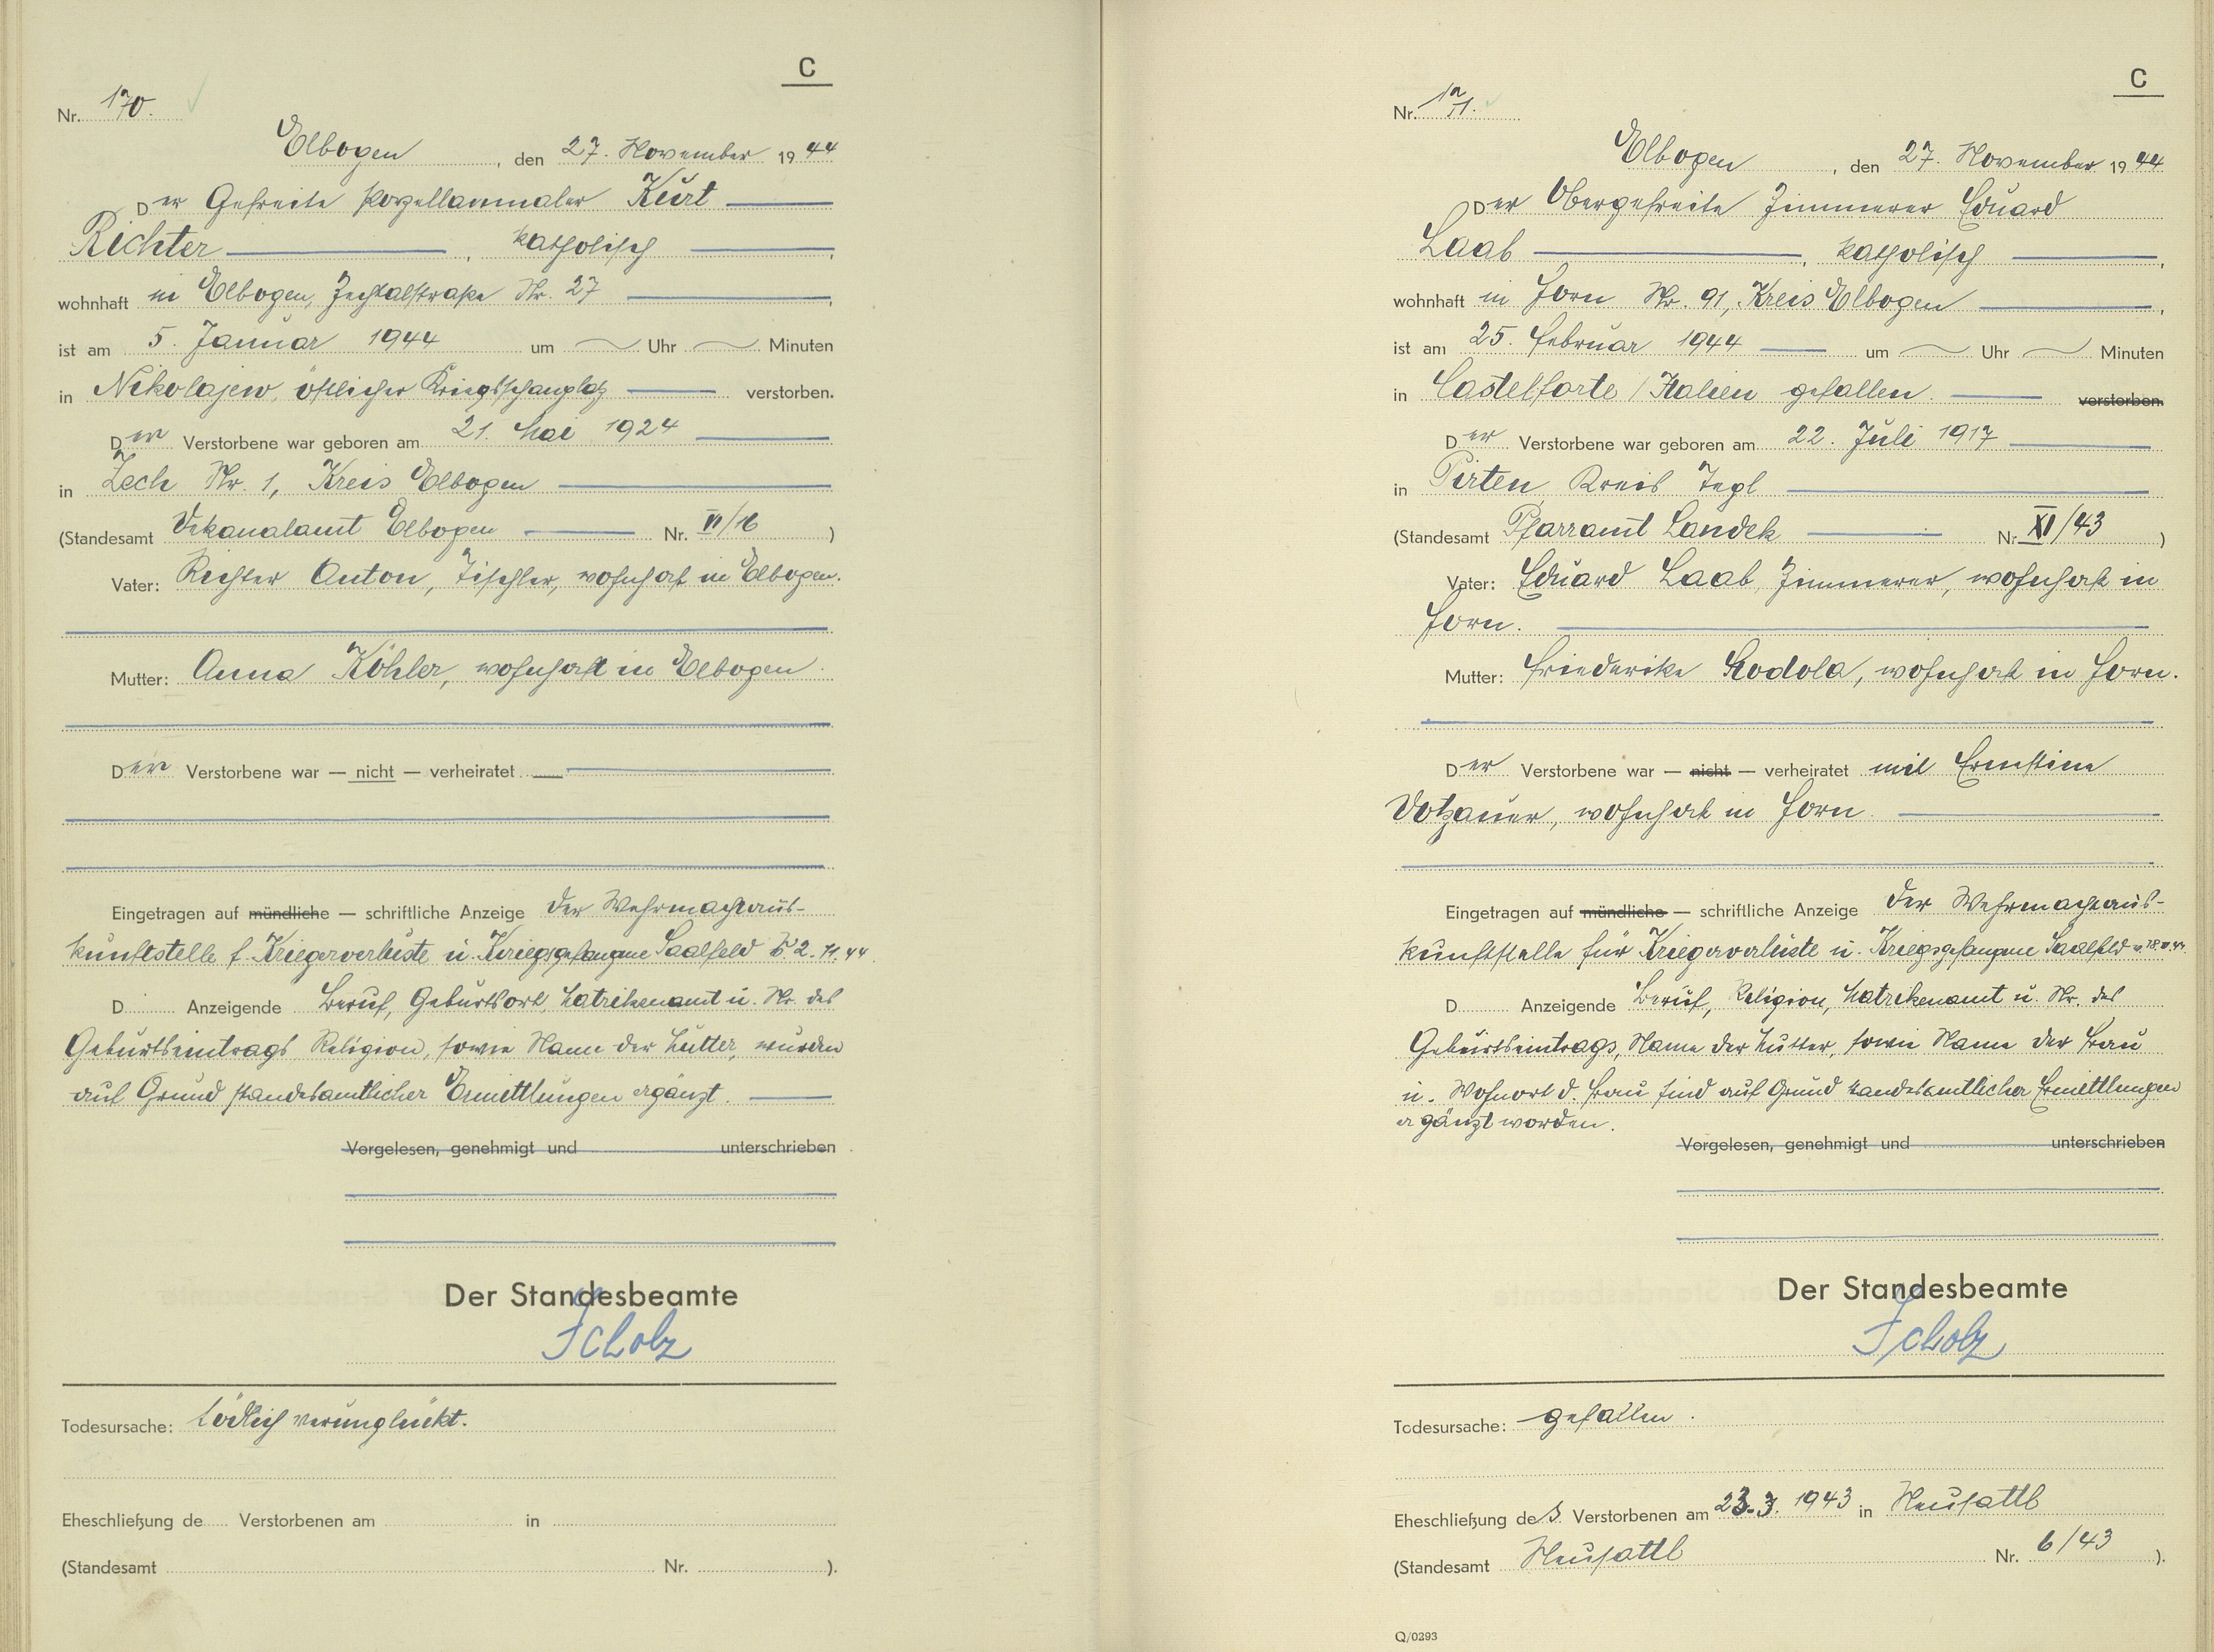 C
Nr. 170.
Elbogen, den 27. November 1944
Der Gefreite Porzellanmaler Kurt
Richter, katholisch,
wohnhaft in Elbogen, Zechtalstraße Nr. 27,
ist am 5. Januar 1944 um Uhr Minuten
in Nikolajew, östlicher Kriegsschauplatz verstorben.
Der Verstorbene war geboren am 21. Mai 1924
in Zech Nr. 1, Kreis Elbogen
(Standesamt Dekanalamt Elbogen Nr. VI/16)
Vater: Richter Anton, Tischler, wohnhaft in Elbogen.
Mutter: Anna Köhler, wohnhaft in Elbogen.
Der Verstorbene war — nicht — verheiratet
Eingetragen auf mündliche — schriftliche Anzeige der Wehrmachtaus-
kunftstelle f. Kriegerverluste u. Kriegsgefangene Saalfeld v. 2. 11. 44.
D Anzeigende Beruf, Geburtsort, Matrikenamt u. Nr. des
Geburtseintrags Religion, sowie Name der Mutter, wurden
auf Grund standesamtlicher Ermittlungen ergänzt.
Vorgelesen, genehmigt und unterschrieben
Der Standesbeamte
Scholz
Todesursache: tödlich verunglückt.
Eheschließung de Verstorbenen am in
(Standesamt Nr. ).
C
Nr. 171.
Elbogen, den 27. November 1944
Der Obergefreite Zimmerer Eduard
Laab, katholisch,
wohnhaft in Horn Nr. 91, Kreis Elbogen,
ist am 25. Februar 1944 um Uhr Minuten
in Castelforte / Italien gefallen. verstorben.
Der Verstorbene war geboren am 22. Juli 1917
in Pirten Kreis Tepl
(Standesamt Pfarramt Landek Nr. XI/43)
Vater: Eduard Laab, Zimmerer, wohnhaft in
Horn.
Mutter: Friederike Hodola, wohnhaft in Horn.
Der Verstorbene war — nicht — verheiratet mit Ernstine
Votzauer, wohnhaft in Horn.
Eingetragen auf mündliche — schriftliche Anzeige der Wehrmachtaus-
kunftstelle für Kriegerverluste u. Kriegsgefangene Saalfeld
D Anzeigende Beruf, Religion, Matrikenamt u. Nr. des
Geburtseintrags, Name der Mutter, sowie Name der Frau
u. Wohnort d. Frau sind auf Grund standesamtlicher Ermittlungen
ergänzt worden.
Vorgelesen, genehmigt und unterschrieben
Der Standesbeamte
Scholz
Todesursache: gefallen.
Eheschließung des Verstorbenen am 23.3. 1943 in Neusattl
(Standesamt Neusattl Nr. 6/43).
Q/0293